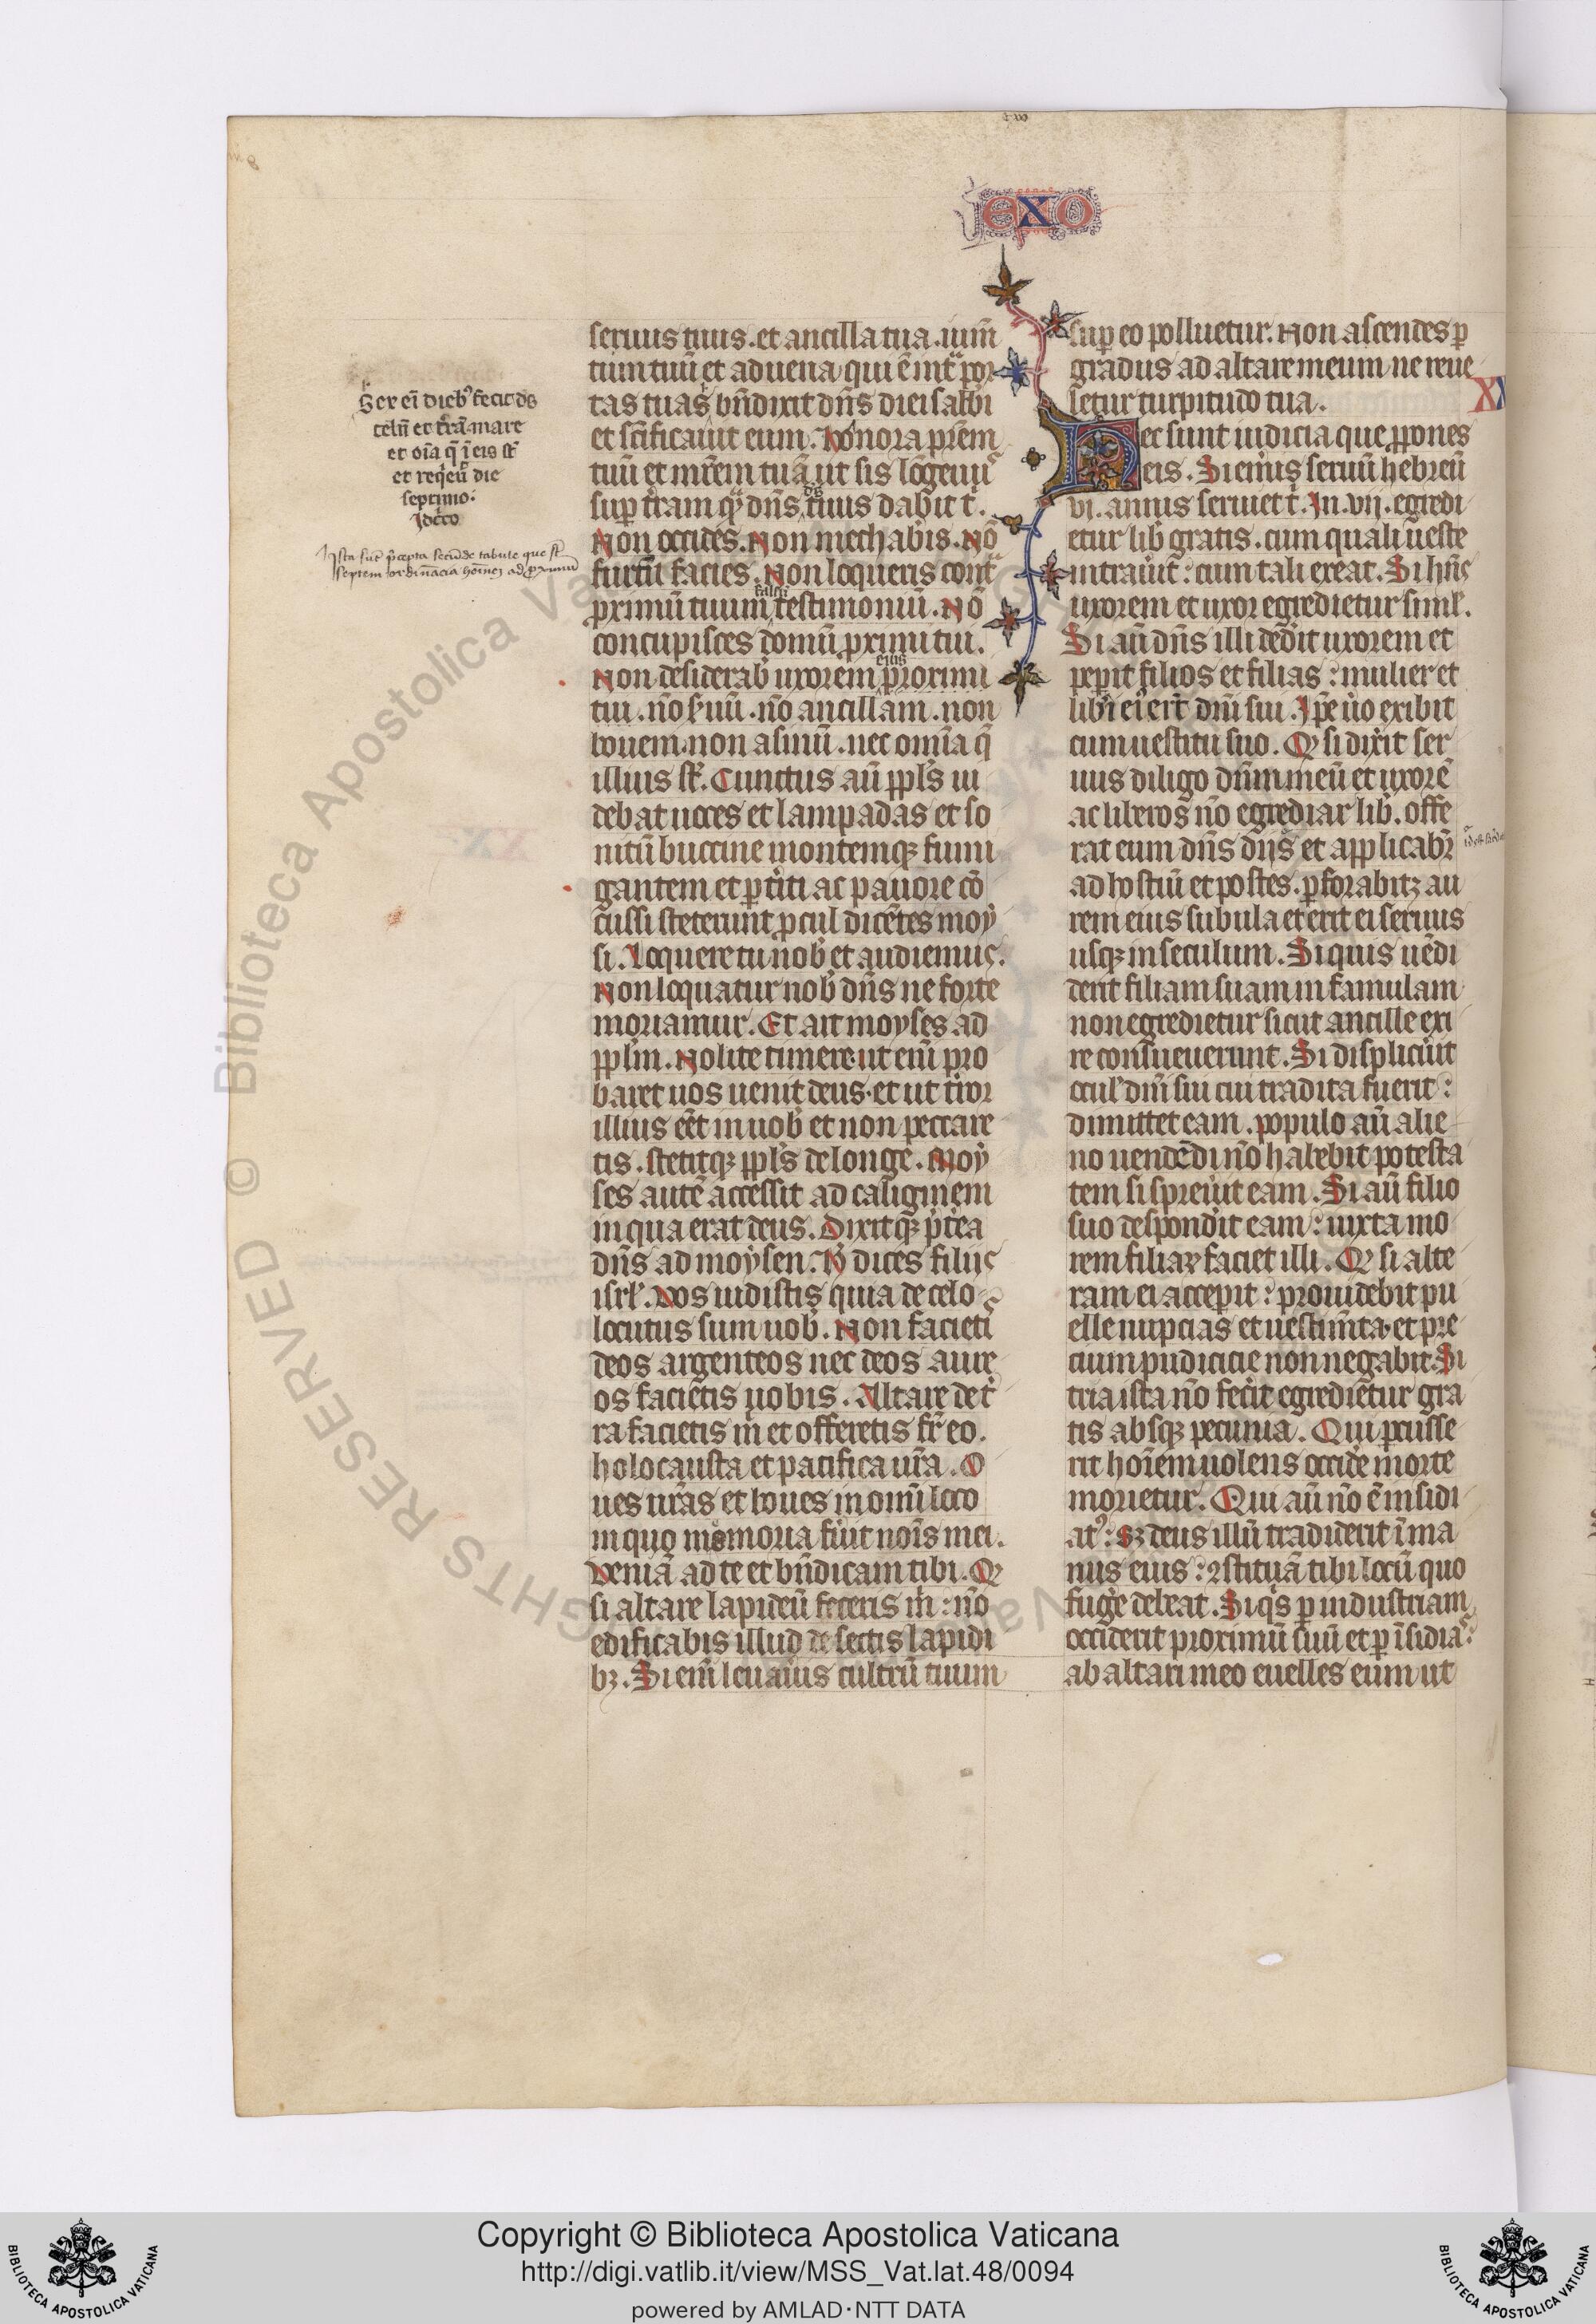 exo
seruus tuus. et ancilla tua. ium̄
tum tuū et aduena qui ē int͛ por
tas tuas bn̄dixit dn̄s diei sabbi
et scīficauit eum. Honora pr̄em
tuū et mr̄em tuā ut sis lōgeuus
sup t̄ram qͣ dn̄s ds tuus dabit t͛.
Non occides. Non mechabis. Nō
furtū facies. Non loqueris contͣ
pximū tuum falsū testimoniū. Nō
concupisces domū pximi tui.
Non desiderab uxorem eius proximi
tui. nō s͛uū. nō ancillam. non
bouem. non asinū. nec omīa q̄
illius sͭ. Cunctus aū ppl̄s ui
debat uoces et lampadas et so
nitū buccine montemqꝫ fumi
gantem et pt͛iti ac pauore cō
cussi steterunt pcul dicētes moy
si. Loquere tu nob et audiemus.
Non loquatur nob dn̄s ne forte
moriamur. Et ait moyses ad
ppl̄m. Nolite timere. ut eni pro
baret uos uenit deus. et ut t͛ror
illius eēt in uob et non peccare
tis. Stetitqꝫ ppl̄s de longe. Moy
ses autē accessit ad caliginem
in qua erat deus. Dixitqꝫ pt͛ea
dn̄s ad moysen. H̄ dices filijs
isrl̄. Vos uidistis quia de celo
locutus sum uob. Non facietis
deos argenteos nec deos aure
os facietis uobis. Altare de t͛
ra facietis m̄ et offeretis sr̄ eo.
holocausta et pacifica ur̄a. O
ues ur̄as et boues in omī loco
in quo memoria fu͛it nois mei.
Veniā ad te et bn̄dicam tibi. Qꝫ
si altare lapideū feceris m̄: nō
edificabis illud de sectis lapidi
bꝫ. Si eni leuau͛is cultrū tuum
Sex ei diebꝰ fecit ds
celū et t̄rā. mare
et oīa q̄ ī eis sͭ
et reqͥeuͭ die
septimo.
Idcͥco
Ista sūt p̄cepta secūde tabule que sͭ
septem ordināncia hoīnes ad proximū
sup eo polluetur. Non ascendes p
gradus ad altare meum ne reue
letur turpitudo tua.
Hec sunt iudicia que ppones
eis. Si em͛is seruū hebreū
vi. annis seruiet t͛. In. vij. egredi
etur lib gratis. cum quali ueste
intrau͛it: cum tali exeat. Si hn̄s
uxorem et uxor egredietur simł.
Si aū dn̄s illi ded͛it uxorem et
pep͛it filios et filias: mulier et
lib͛i ei͛ er̄t dn̄i sui. Ipe u͛o exibit
cum uestitu suo. Qꝫ si dix͛it ser
uus diligo dn̄m meū et uxorē
ac liberos nō egrediar lib. offe
rat eum dn̄s dijs et applicabr̄
ad hostiū et postes. pforabitqꝫ au
rem eius subula et erit ei seruus
usqꝫ in seculum. Si quis uēdi
derit filiam suam in famulam
non egredietur sicut ancille exi
re consueuerunt. Si displicu͛it
oculꝭ dn̄i sui cui tradita fuerit:
dimittet eam. populo aū alie
no uendēdi nō habebit potesta
tem si spreu͛it eam. Si aū filio
suo despond͛it eam: iuxta mo
rem filiaꝝ faciet illi. Qꝫ si alte
ram ei accepit: prouidebit pu
elle nupcias et uestim̄ta. et pre
cium pudicicie non negabit. Si
tria ista nō fec͛it egredietur gra
tis absqꝫ pecunia. Qui pcusse
rit hoīem uolens occide͛ morte
morietur. Qui aū nō ē insidi
atꝰ: Sꝫ deus illū tradiderit ī ma
nus eius: ꝯstituā tibi locū quo
fuge͛ debeat. Si qͥs p industriam
occiderit proximū suū et p īsidias:
ab altari meo euelles eum ut
Copyright © Biblioteca Apostolica Vaticana
http://digi.vatlib.it/view/MSS_Vat.lat.48/0094
powered by AMLAD·NTT DATA
BIBLIOTECA APOSTOLICA VATICANA
BIBLIOTECA APOSTOLICA VATICANA